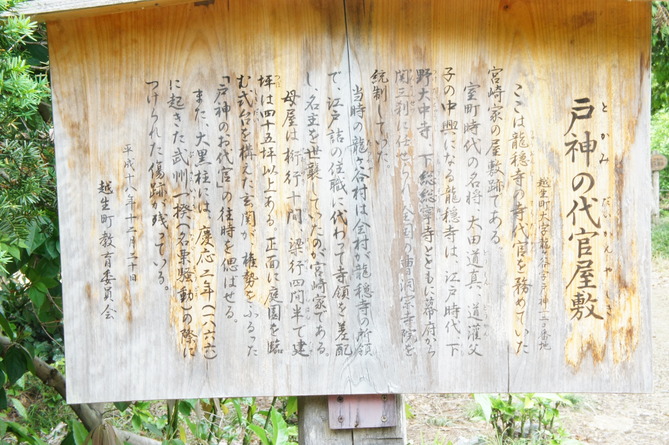 とかみ だいかんやしき
戸神の代官屋敷
越生町大字龍ヶ谷字戸神
ここは龍穏寺の寺代官を務めていた
宮崎家の屋敷跡である。
室町時代の名将、太田道真、道灌父
子の中興になる龍穏寺は、江戸時代、下
野大中寺、下総総寧寺とともに幕府から
関三利に任ぜられ、全国の曹洞宗寺院を
統制していた。
当時の龍ヶ谷村は全村が龍穏寺の所領
で、江戸詰の住職に代わって寺領を差配
し、名主を世襲していたのが宮崎家である。
母屋は桁行十間、梁行四間半で建
坪は四十五坪以上ある。正面に庭園を臨
む式台を構えた玄関が、権勢をふるった
「戸神のお代官」の往時を偲ばせる。
また、大黒柱には、慶応二年(一八六六)
に起きた武州一揆(名栗騒動)の際に
つけられた傷跡が残っている。
平成十八年十二月二十日
越生町教育委員会